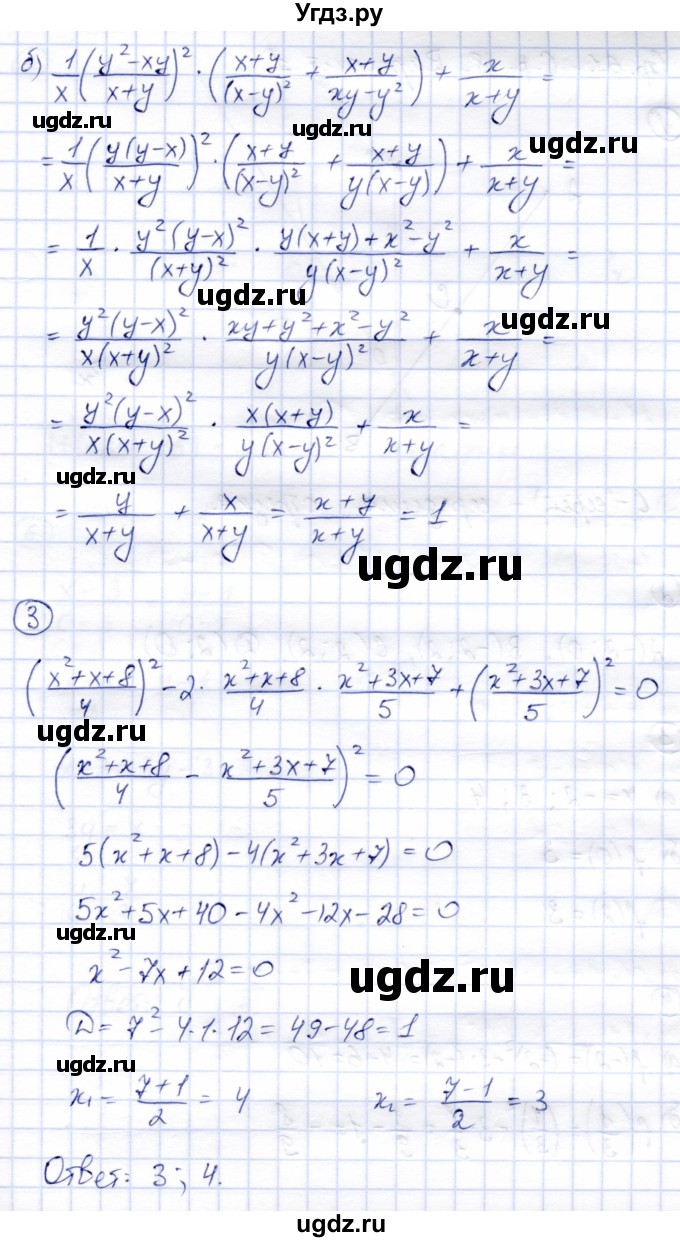 Угдз.ру
б) 1/x ((y²-xy)/(x+y))² · ((x+y)/(x-y)² + (x+y)/(xy-y²)) + x/(x+y) =
ugdz.ru ugdz.ru ugdz.ru
= 1/x ((y(y-x))/(x+y))² · ((x+y)/(x-y)² + (x+y)/(y(x-y))) + x/(x+y) =
= 1/x · (y²(y-x)²)/(x+y)² · (y(x+y)+x²-y²)/(y(x-y)²) + x/(x+y) =
ugdz.ru
= (y²(y-x)²)/(x(x+y)²) · (xy+y²+x²-y²)/(y(x-y)²) + x/(x+y) =
ugdz.ru ugdz.ru
= (y²(y-x)²)/(x(x+y)²) · (x(x+y))/(y(x-y)²) + x/(x+y) =
ugdz.ru
= y/(x+y) + x/(x+y) = (x+y)/(x+y) = 1
ugdz.ru
3
((x²+x+8)/4)² - 2 · (x²+x+8)/4 · (x²+3x+7)/5 + ((x²+3x+7)/5)² = 0
ugdz.ru ugdz.ru
((x²+x+8)/4 - (x²+3x+7)/5)² = 0
5(x²+x+8)-4(x²+3x+7)=0
5x²+5x+40-4x²-12x-28=0
ugdz.ru
x²-7x+12=0
ugdz.ru
D=7²-4·1·12=49-48=1
ugdz.ru
x₁ = (7+1)/2 = 4 x₂ = (7-1)/2 = 3
Ответ: 3; 4.
ugdz.ru